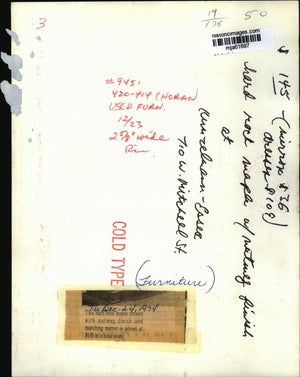 3
19
176
50
rsroncimages.com
mja61697
$145 - (mirror $36
dresser $109)
hard rock maple w/nutmeg finish
at
Kunzelmann-Esser
710 W. Mitchell St.
#9451
420-414 (HORAN)
USED FURN.
12/23
2 5/8" wide
COLD TYPE
(Furniture)
Dec. 24, 1974
This hard rock maple dresser
with nutmeg finish and
matching mirror is priced at
$145 at a local store.